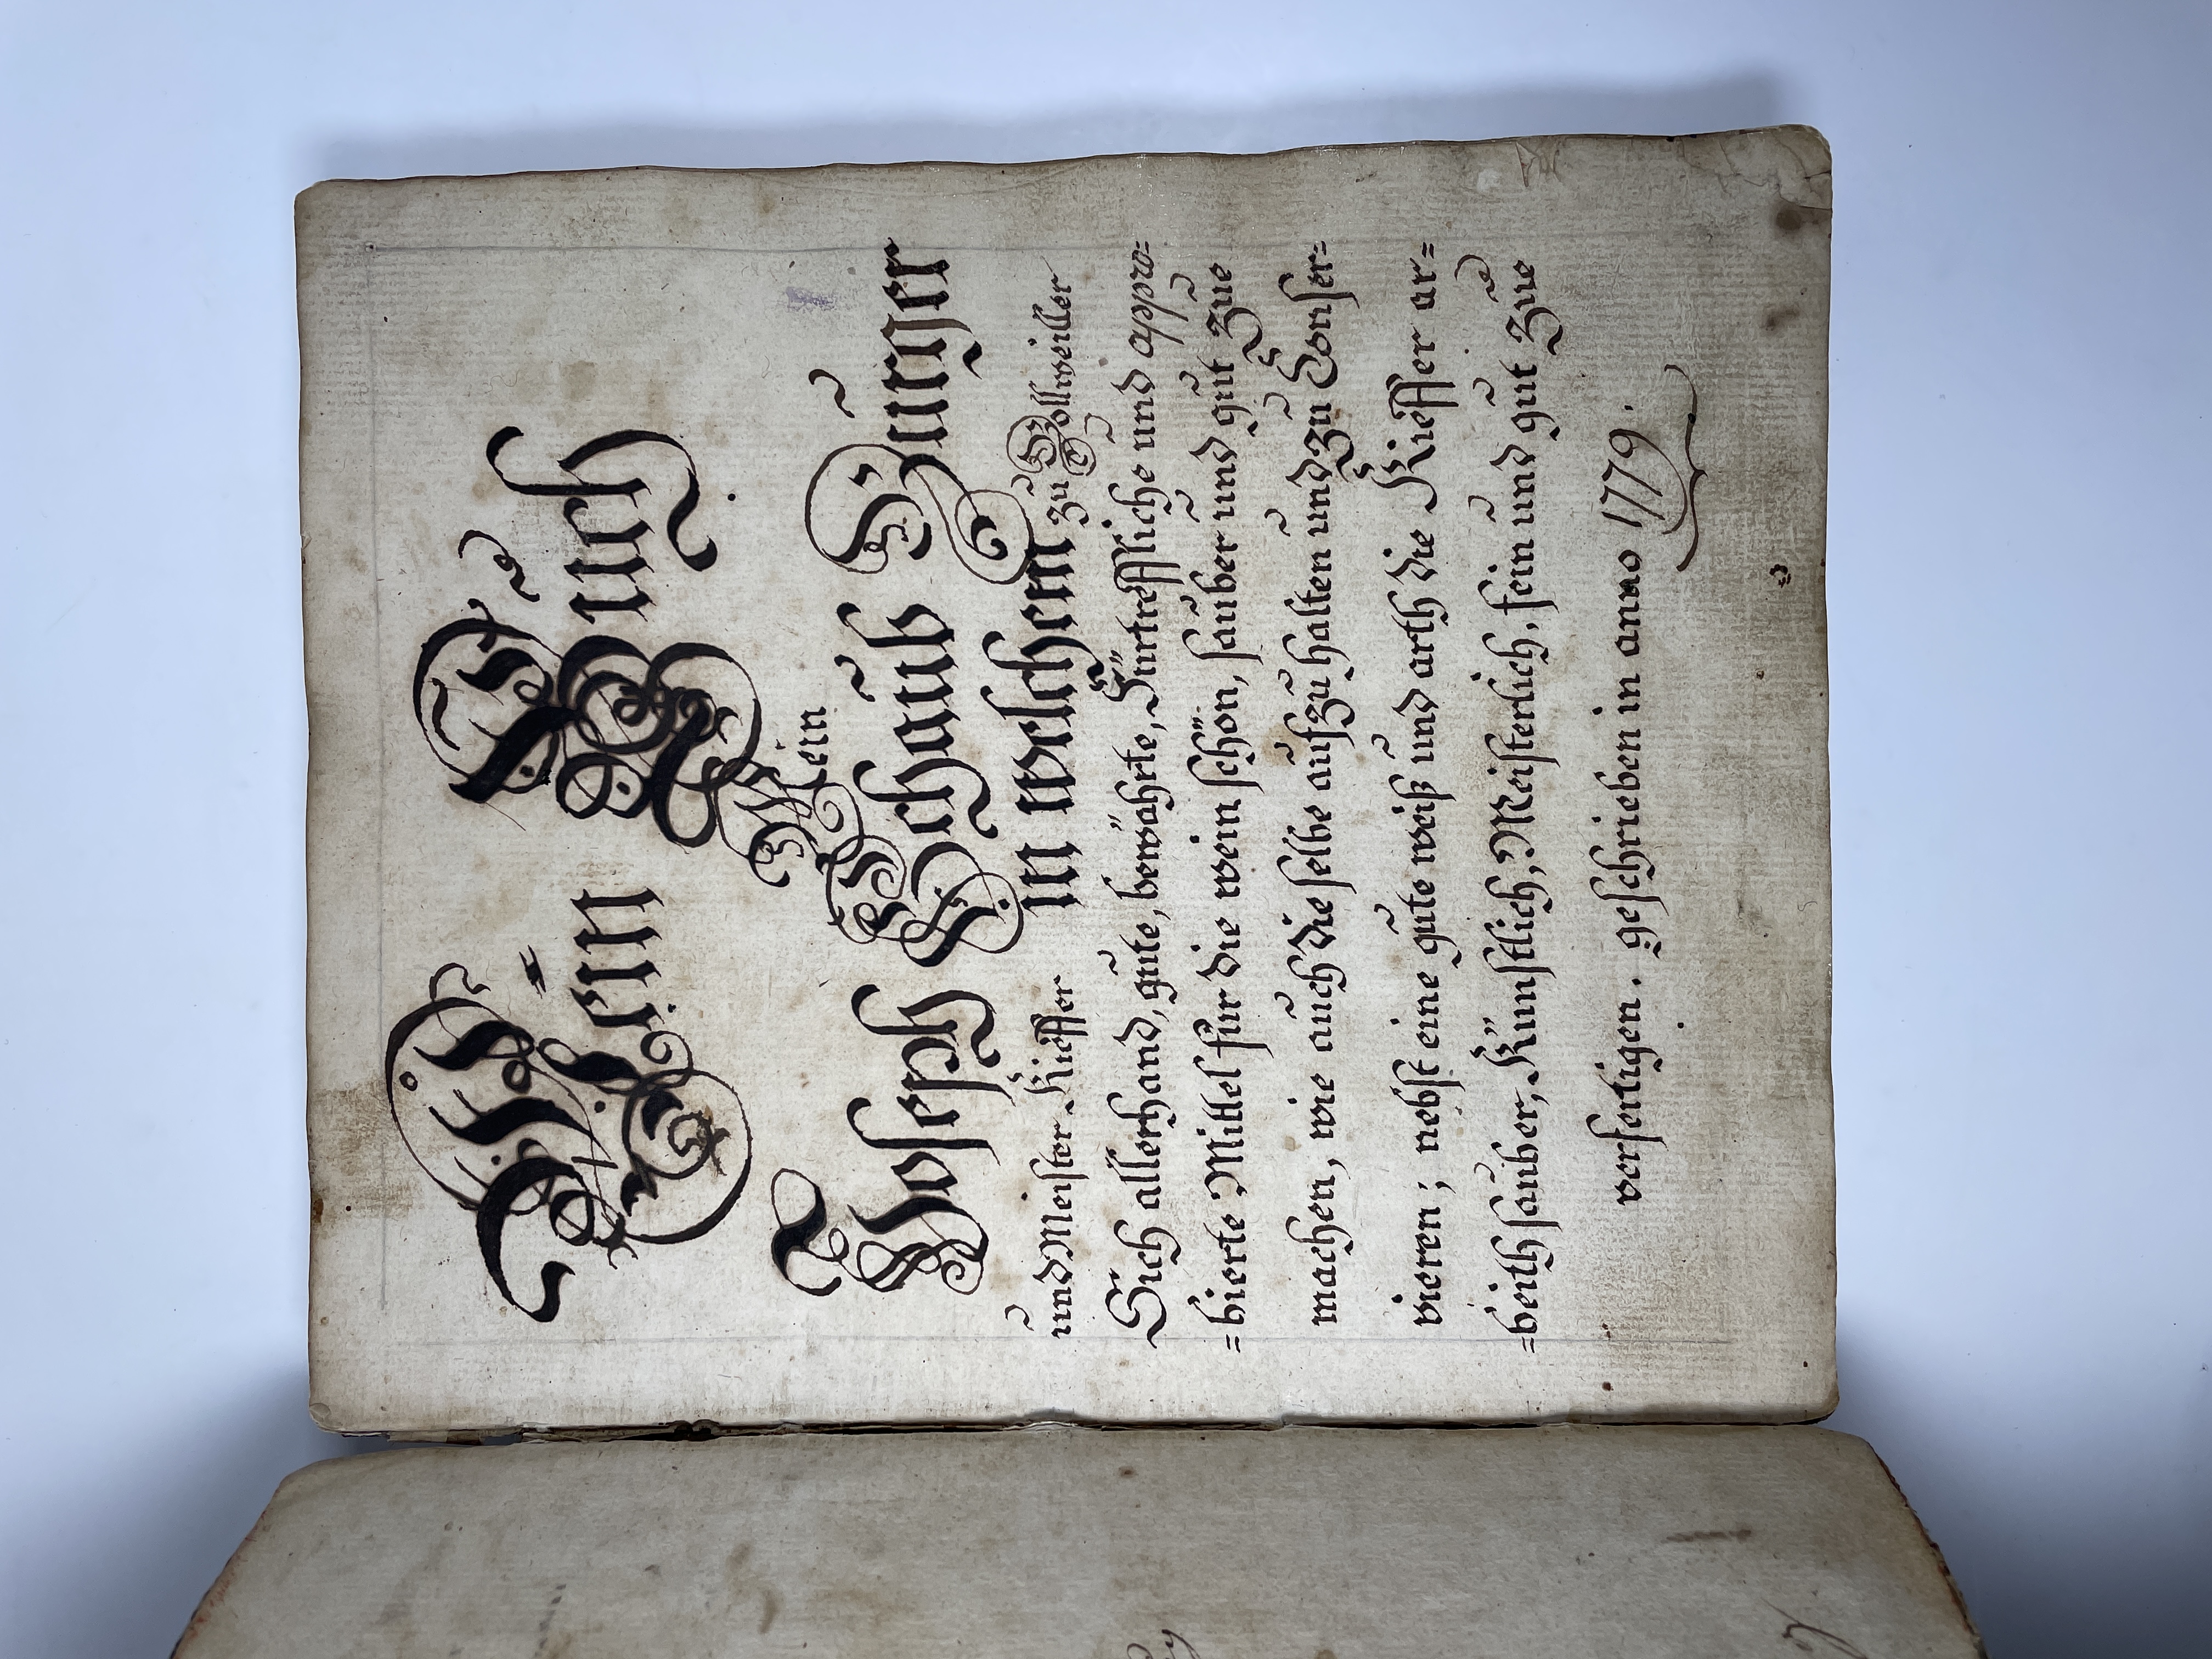 Wein Buch
Mein
Joseph Schaub Burger
und Meister Kieffer in welchem zu Bollweiller
Sich allerhand, gute, bewährte, Fürtreffliche und appro=
=bierte Mittel für die wein schön, sauber und gut zue
machen, wie auch die selbe auf zu halten und zu Conser=
vieren; nebst eine gute weiß und arth die Kieffer ar=
=beith sauber, Künstlich, Meisterlich, fein und gut zue
verfertigen. geschrieben in anno 1779.